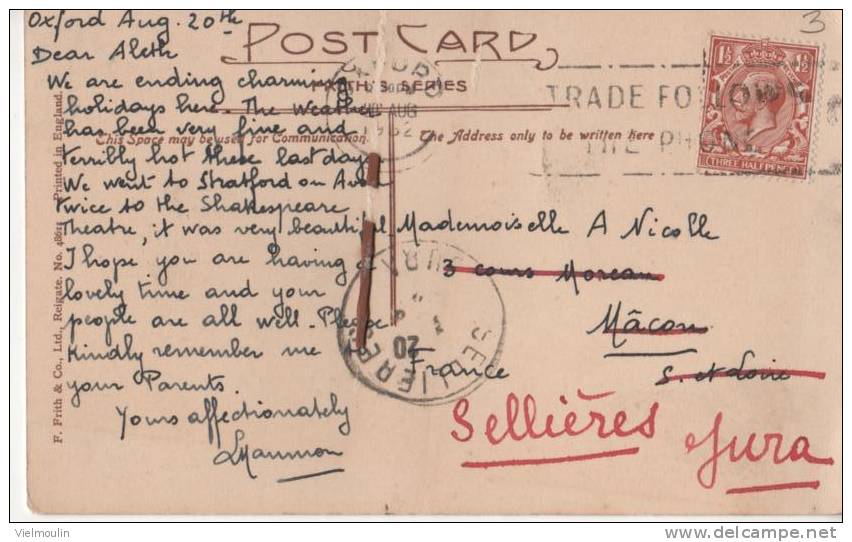 Oxford Aug. 20th
Dear Aleth
We are ending charming
holidays here. The Weather
has been very fine and
terribly hot these last days
We went to Stratford on Avon
twice to the Shakespeare
Theatre, it was very beautiful
I hope you are having a
lovely time and your
people are all well. Please
Kindly remember me to
your Parents.
Yours affectionately
POST CARD
FRITH'S SERIES
This Space may be used for Communication.
The Address only to be written here
F. Frith & Co., Ltd., Reigate. No. Printed in England.
3
1½
TRADE FOLLOWS
THE PHONE
THREE HALFPENCE
AUG
Mademoiselle A Nicolle
3 cours Moreau
Mâcon
S. et Loire
France
Sellières
Jura
SELLIERES
JURA
20
Vielmoulin
www.delcampe.net